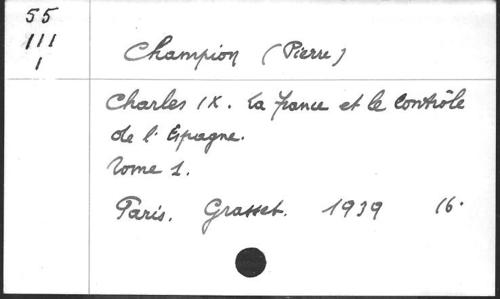 55
III
1
Champion (Pierre)
Charles IX. La France et le Contrôle
de l'Espagne.
Tome 1.
Paris. Grasset. 1939 16.